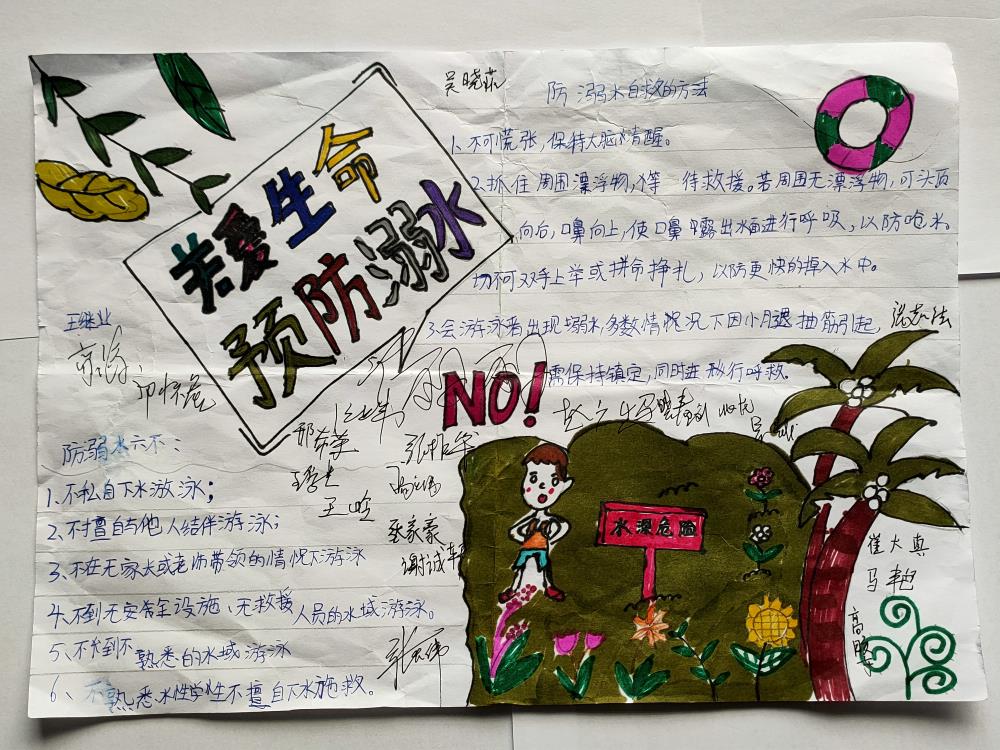 吴晓菲
防溺水自救的方法
1、不可慌张,保持大脑清醒。
2.抓住周围漂浮物,等待救援。若周围无漂浮物,可头顶
向后,口鼻向上,使口鼻露出水面进行呼吸,以防呛水。
切不可双手上举或拼命挣扎,以防更快的掉入水中。
3.会游泳者出现溺水多数情况下因小腿抽筋引起,
需保持镇定,同时进行呼救。
若爱生命
预防溺水
王继业
NO!
防溺水六不:
1、不私自下水游泳;
2、不擅自与他人结伴游泳;
3、不在无家长或老师带领的情况下游泳
4、不到无安全设施、无救援人员的水域游泳。
5、不到不熟悉的水域游泳
6、不熟悉水性学生不擅自下水施救。
王晗
张家豪
谢诚
水深危险
崔大真
马艳
高鹏